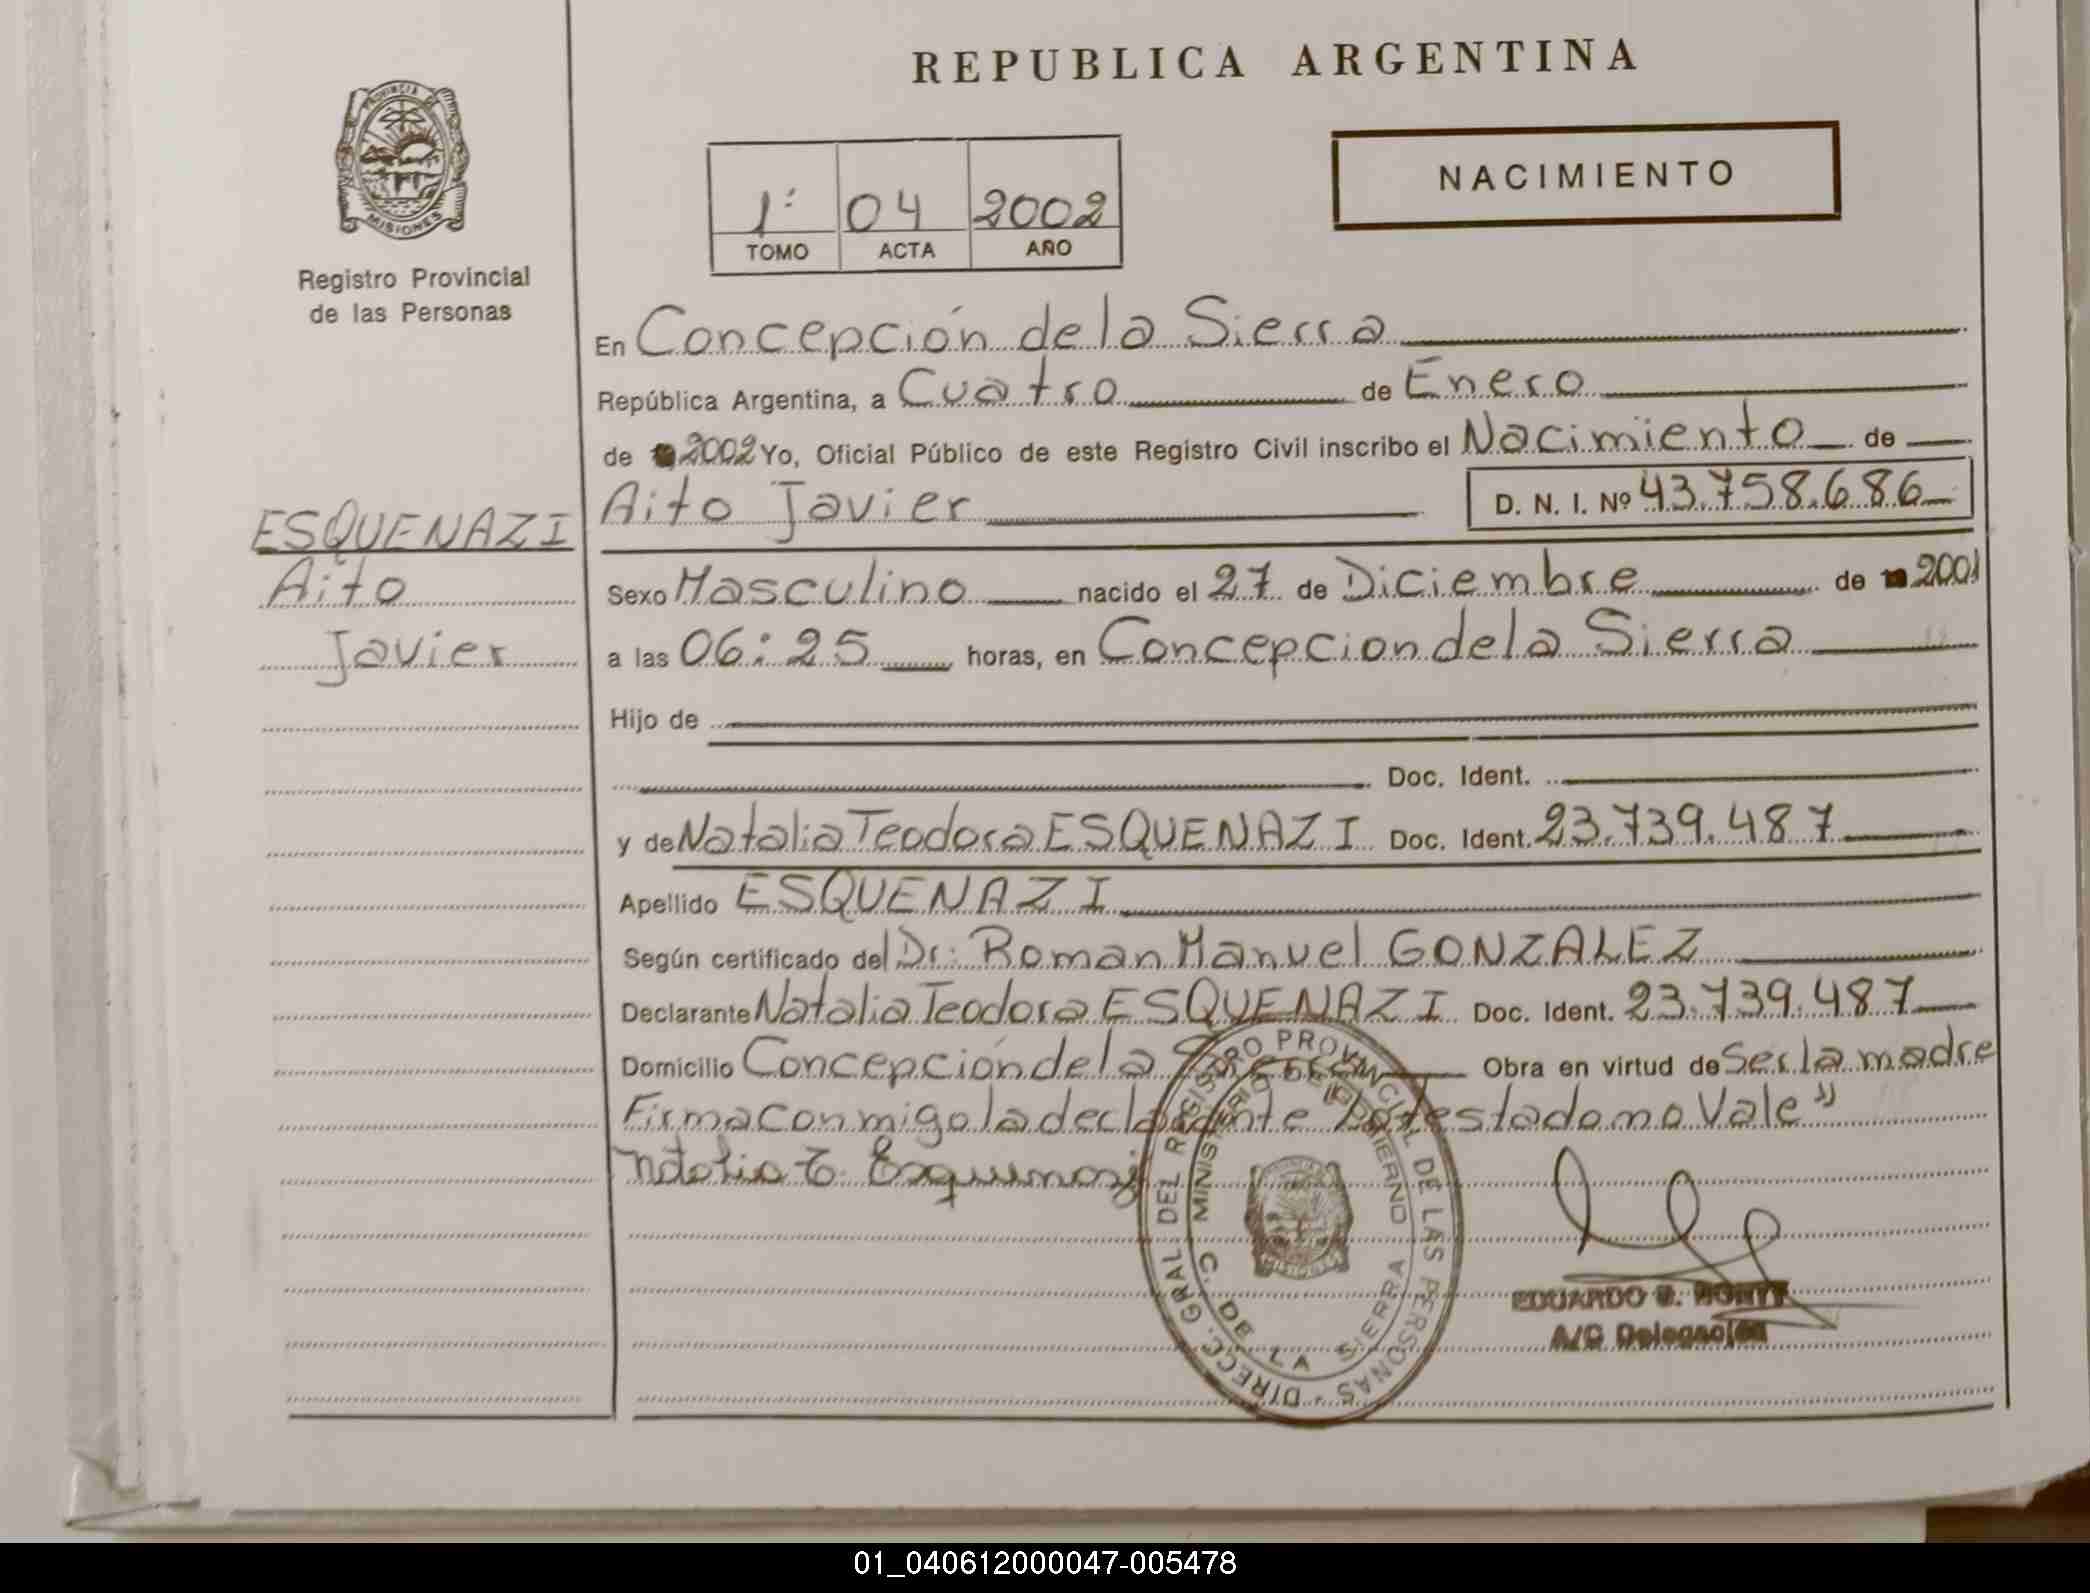 REPUBLICA ARGENTINA
PROVINCIA DE
MISIONES
Registro Provincial
de las Personas
1º 04 2002
TOMO ACTA AÑO
NACIMIENTO
En Concepción de la Sierra
República Argentina, a Cuatro de Enero
de 2002 Yo, Oficial Público de este Registro Civil inscribo el Nacimiento de
Aito Javier D. N. I. Nº 43.758.686
ESQUENAZI
Aito
Javier
Sexo Masculino nacido el 27 de Diciembre de 2001
a las 06:25 horas, en Concepcion de la Sierra
Hijo de
Doc. Ident.
y de Natalia Teodora ESQUENAZI Doc. Ident. 23.739.487
Apellido ESQUENAZI
Según certificado del Dr: Roman Manuel GONZALEZ
Declarante Natalia Teodora ESQUENAZI Doc. Ident. 23.739.487
Domicilio Concepción de la Sierra Obra en virtud de Ser la madre
Firma conmigo la declarante Lo testado no Vale"
Natalia T. Esquenazi
DIRECC. GRAL DEL REGISTRO PROVINCIAL DE LAS PERSONAS
MINISTERIO DE GOBIERNO
C. DE LA SIERRA
MISIONES
EDUARDO
A/C Delegación
01_040612000047-005478